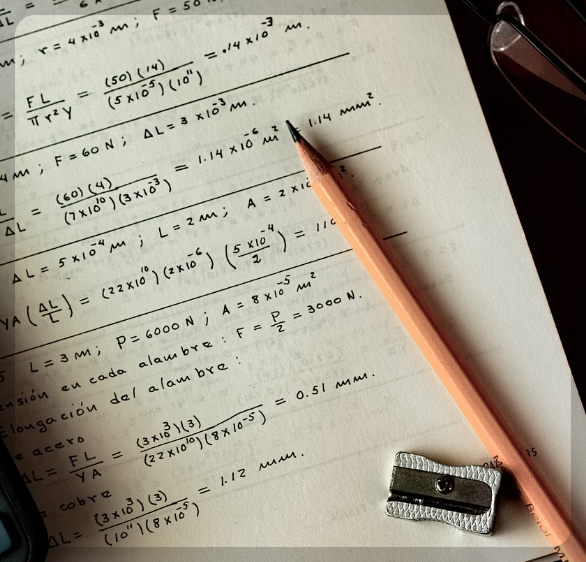 r = 4x10⁻³ m ; F = 50 N
= FL / πr²Y = (50)(14) / (5x10⁻⁵)(10¹¹) = .14x10⁻³ m.
4 m ; F = 60 N ; ΔL = 3x10⁻³ m.
ΔL = (60)(4) / (7x10¹⁰)(3x10⁻³) = 1.14x10⁻⁶ m² = 1.14 mm².
ΔL = 5x10⁻⁴ m ; L = 2 m ; A = 2x10
YA (ΔL / L) = (22x10¹⁰)(2x10⁻⁶) (5x10⁻⁴ / 2) = 110
L = 3 m ; P = 6000 N ; A = 8x10⁻⁵ m²
en cada alambre : F = P/2 = 3000 N.
Elongación del alambre :
acero
ΔL = FL / YA = (3x10³)(3) / (22x10¹⁰)(8x10⁻⁵) = 0.51 mm.
cobre
ΔL = (3x10³)(3) / (10¹¹)(8x10⁻⁵) = 1.12 mm.